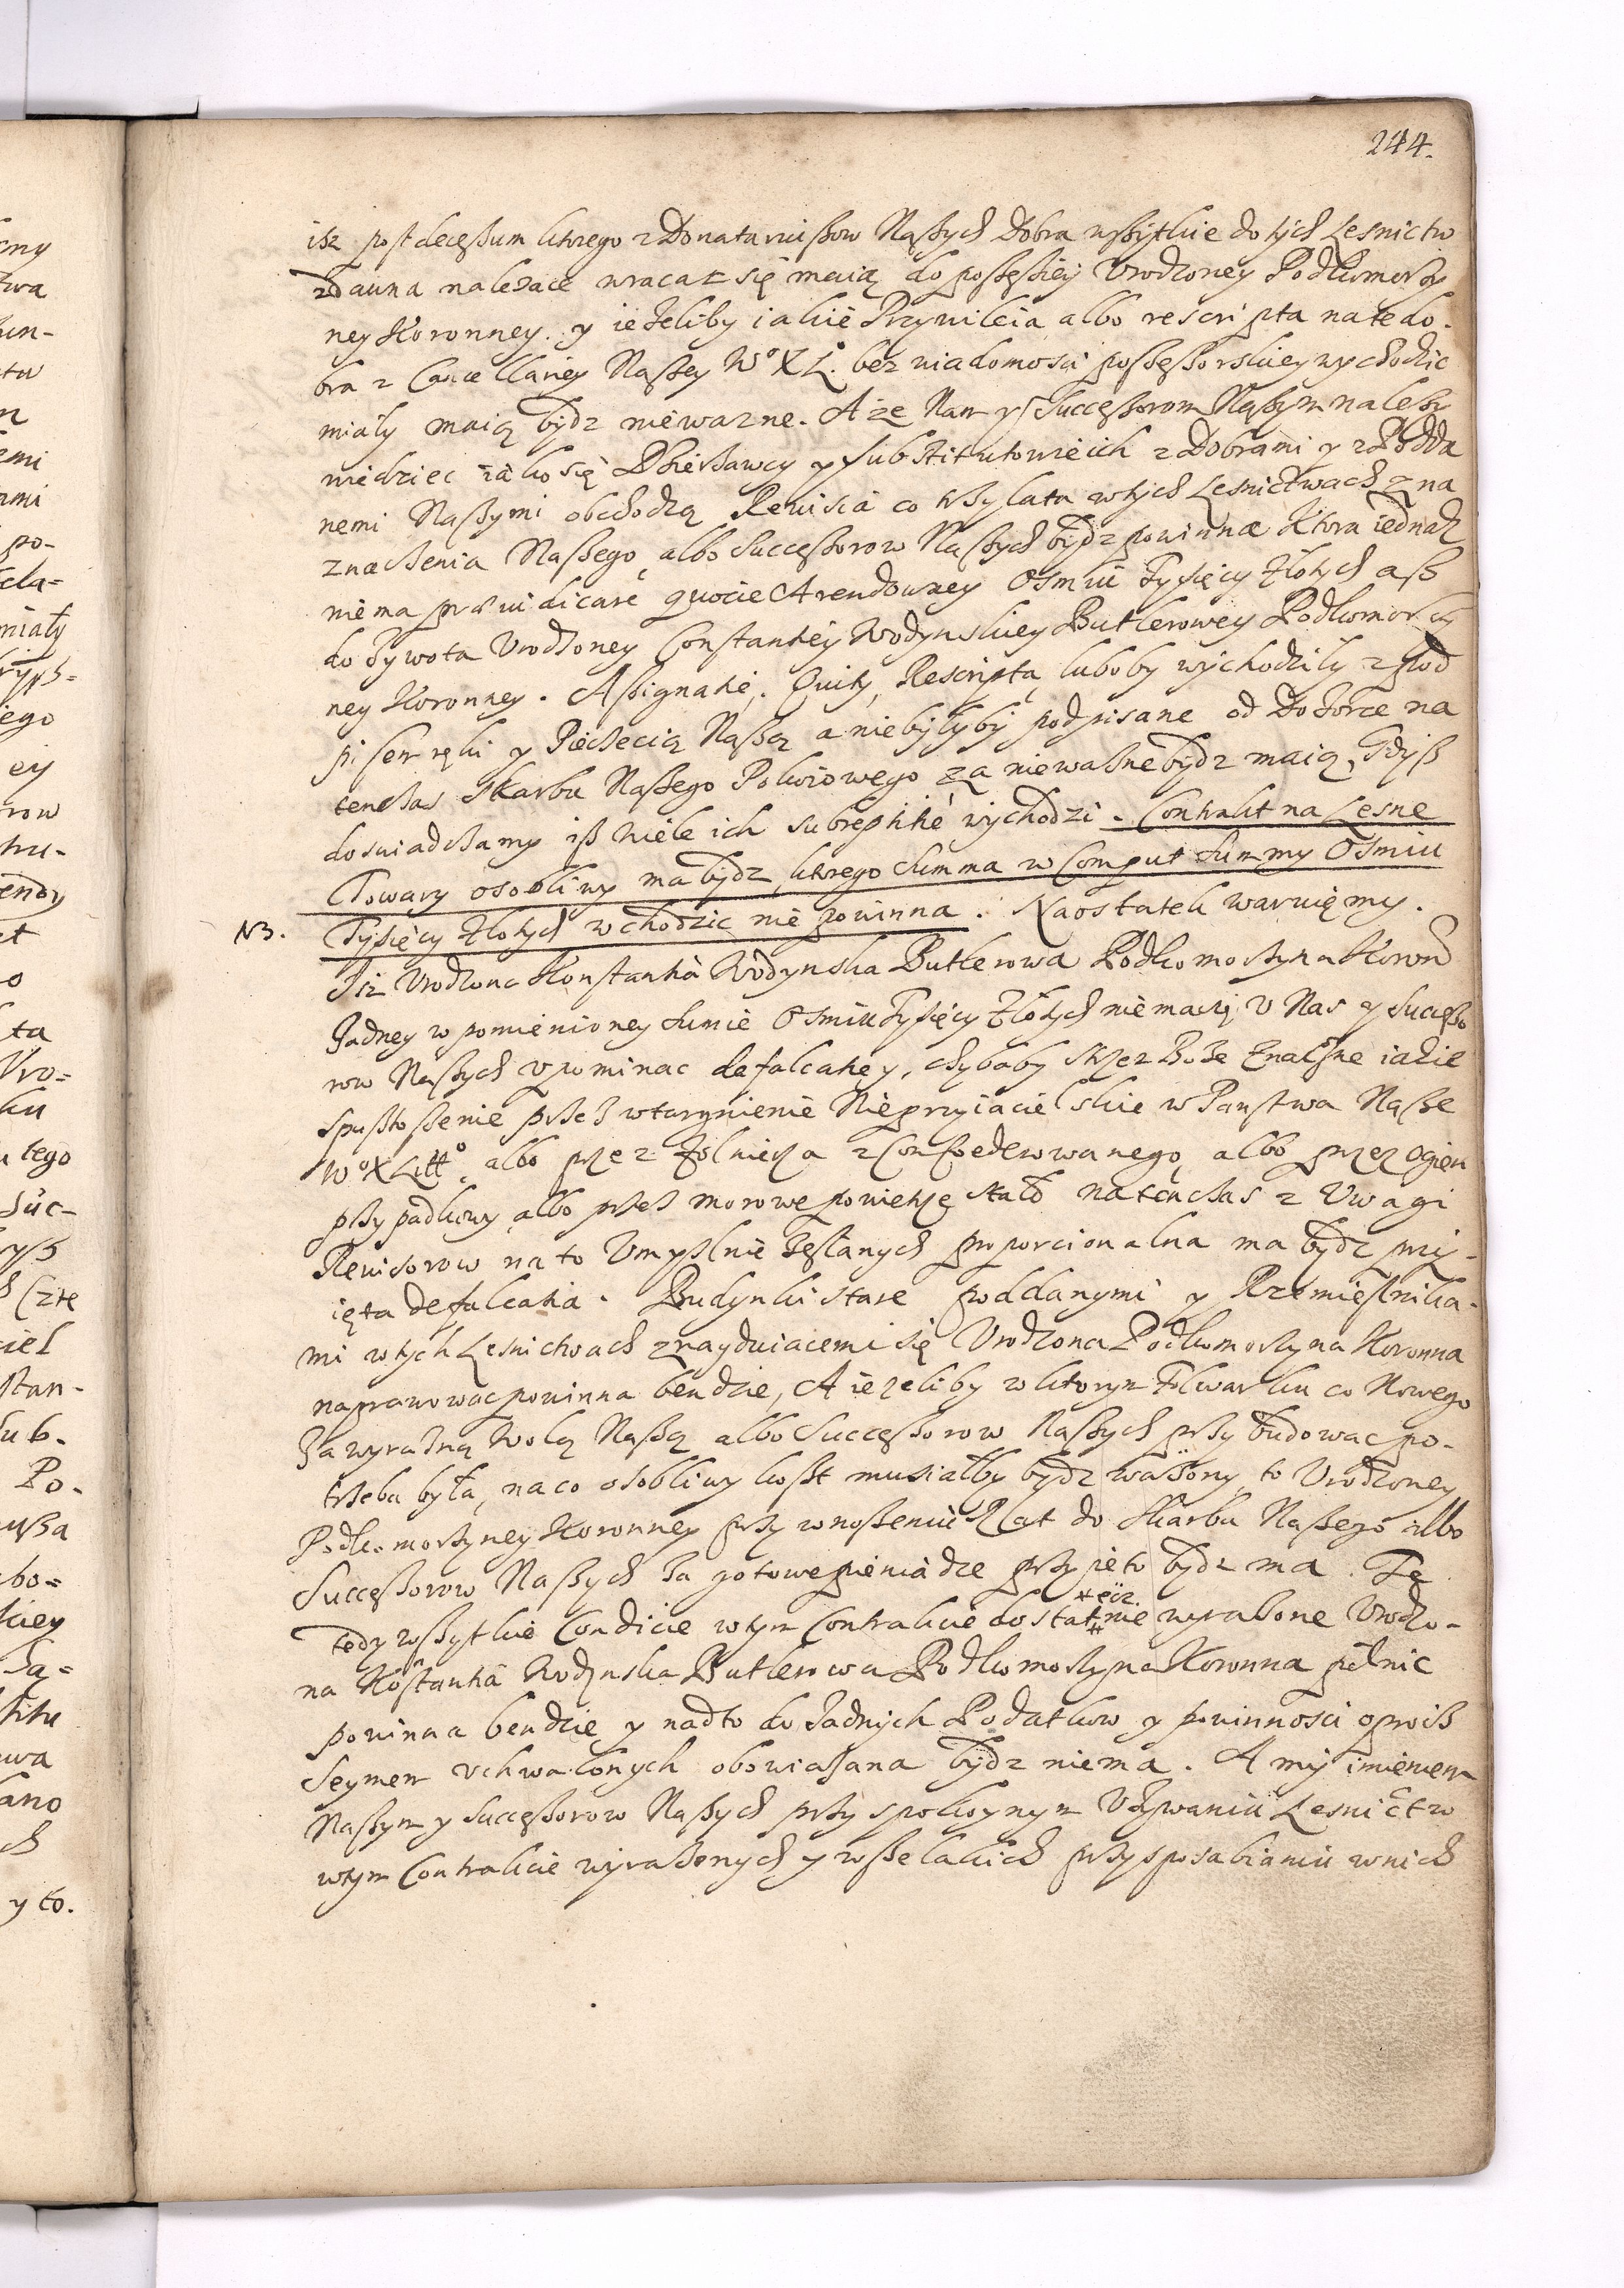 244.
isz post decessum ktorego z Donatariuszow Naszych Dobra wszytkie do tych Lesnictw
zdauna nalezace wracac się maią do possessiey Vrodzoney Podkomorzy
ney Koronney. y iezeliby iakie Przywileia albo rescripta na te do-
bra z Cancellariey Naszey W° X L. bez wiadomosci possessorskiey wychodzic
miały maią bydz niewazne. A ze Nam y Successorom Naszym nalezy
wiedziec iako się Dzierzawcy y substitutowie ich z Dobrami y z Podda
nemi Naszymi obchodzą Reuisia co trzy lata w tych Lesnictwach z na
znaczenia Naszego, albo Successorow Naszych bydz powinna Ktora iednak
niema præiudicare quocie Arendowney Osmiu Tysięcy Złotych asz
do Zywota Vrodzoney Constantiey Wodynskiey Butlerowey Podkomorzy
ney Koronney. Assignatie, Quity, Rescripta, luboby wychodziły z pod
pisem ręki y Pieczecią Naszą a niebyłyby podpisane od Dozorce na
tenczas Skarbu Naszego Pokoiowego za niewazne bydz maią, Gdysz
doswiadczamy isz wiele ich subreptitie wychodzi. Contrakt na Lesne
Towary osobliwy ma bydz, ktorego Summa w Comput Summy Osmiu
NB. Tysięcy Złotych wchodzic nie powinna. Naostatek waruięmy.
Isz Vrodzona Konstantia Wodynska Butlerowa Podkomorzyna Koron͞
Zadney w pomienioney Sumie Osmiu Tysięcy Złotych niema się v Nas y Successo
row Naszych vpominac defalcatiey, chybaby strzez Boze znaczne iakie
spustoszenie przez wtargnienie Nieprzyiacielskie w Panstwa Nasze
W° X Litt°, albo przez Zołnierza zConfoederowanego, albo przez ogien
przypadkowy, albo przez morowe powietrze stało natenczas z Vwagi
Reuisorow na to Vmyslnie Zesłanych proporcionalna ma bydz przy-
ięta defalcatia. Budynki stare poddanymi y Rzemiesnika-
mi w tych Lesnictwach znayduiacemi się Vrodzona Podkomorzyna Koronna
naprawowac powinna bendzie, A iezeliby w ktorym Folwarku co Nowego
Za wyrazną Wolą Naszą albo Successorow Naszych przybudowac po-
trzeba była, na co osobliwy koszt musiałby bydz wazony, to Vrodzoney
Podkomorzyney Koronney przy wnoszeniu Rat do Skarbu Naszego albo
Successorow Naszych Za gotowe pieniadze przyięto bydz ma. Te
tedy wszytkie Condicie w tym Contrakcie dostatnie wyrazone Vrodzo-
na Kōstantia Wodynska Butlerowa Podkomorzyna Koronna pełnic
powinna bendzie, y nadto do Zadnych Podatkow y powinnosci oprocz
Seymem vchwalonych obowiazana bydz niema. A my imieniem
Naszym y Successorow Naszych przy spokoynym Vzywaniu Lesnictw
w tym Contrakcie wyrazonych y wszelakich przysposabianiu w nich